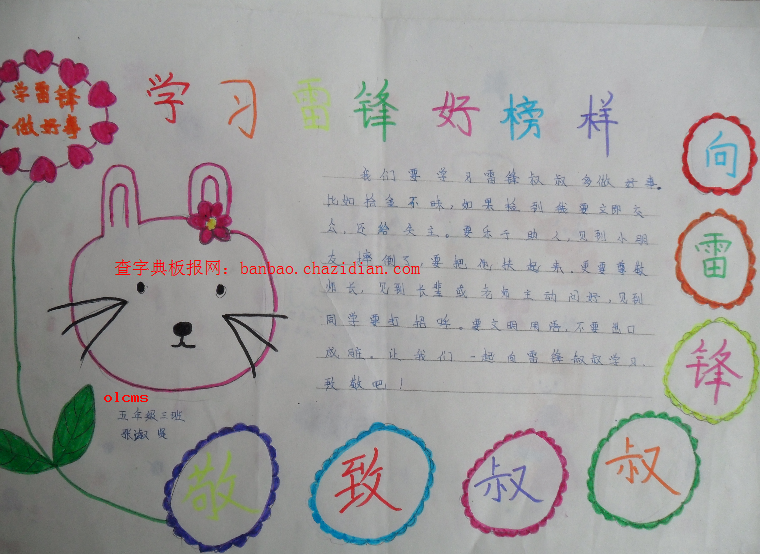 学习雷锋好榜样
学雷锋
做好事
我们要学习雷锋叔叔多做好事。
比如拾金不昧,如果捡到钱要立即交
公,还给失主。要乐于助人,见到小朋
友,摔倒了,要把他扶起来,更要尊敬
师长,见到长辈或老师主动问好,见到
同学要打招呼。要文明用语,不要出口
成脏。让我们一起向雷锋叔叔学习,
致敬吧!
查字典板报网:banbao.chazidian.com
olcms
五年级三班
张淑
向
雷
锋
叔
叔
致
敬